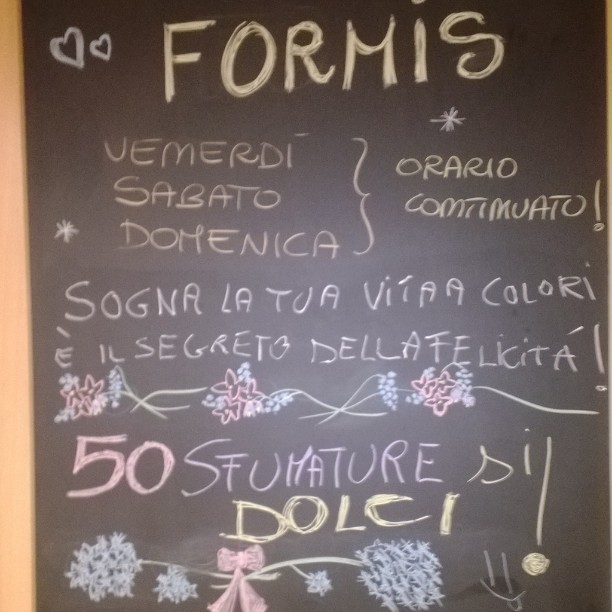 FORMIS
VEMERDÍ
SABATO
DOMENICA
ORARIO
COMTIMUATO!
SOGNA LA TUA VITA A COLORI
È IL SEGRETO DELLA FELICITÁ!
50 SFUMATURE DI
DOLCI!